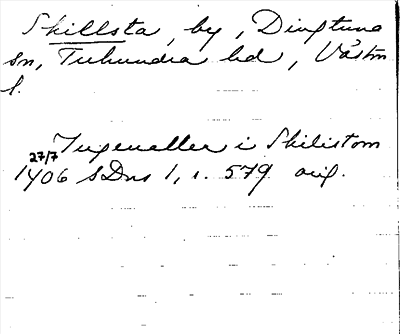 Skillsta, by, Dingtuna
sn, Tuhundra hd, Västm
l.
Jngeualler i Skilistom
27/7
1406 SDns 1, s. 579 orig.